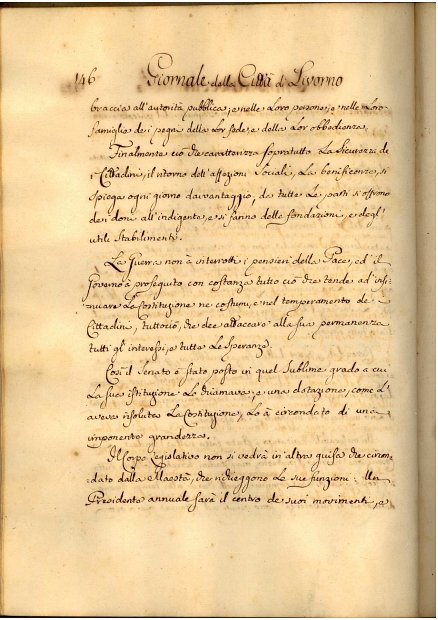 146 Giornale della Città di Livorno
braccia all'autorità pubblica; e nelle Loro persone, e nelle Loro
famiglie de i pegni della Lor fede, e della Lor obbedienza.
Finalmente ciò che caratterizza sopratutto La Sicurezza de
i Cittadini, il ritorno dell'affezioni Sociali, La beneficenza, si
spiega ogni giorno davvantaggio, da tutte Le parti si offrono
de i doni all'indigente, e si fanno delle fondazioni, e degl'
utili Stabilimenti.
La Guerra non à interrotti i pensieri della Pace, ed il
Governo à proseguito con costanza tutto ciò che tende ad insi-
nuare La Costituzione ne costumi, e nel temperamento de
Cittadini, tuttociò, che dee attaccare alla sua permanenza
tutti gl'interessi, e tutte Le Speranze.
Così il Senato è stato posto in quel Sublime grado a cui
La sua istituzione Lo chiamava, e una dotazione, come L'
aveva risoluta La Costituzione, Lo à circondato di una
imponente grandezza.
Il Corpo Legislativo non si vedrà in altra guisa che circon-
dato dalla Maestà, che richieggono Le sue funzioni: Un
Presidente annuale sarà il centro de suoi movimenti, e